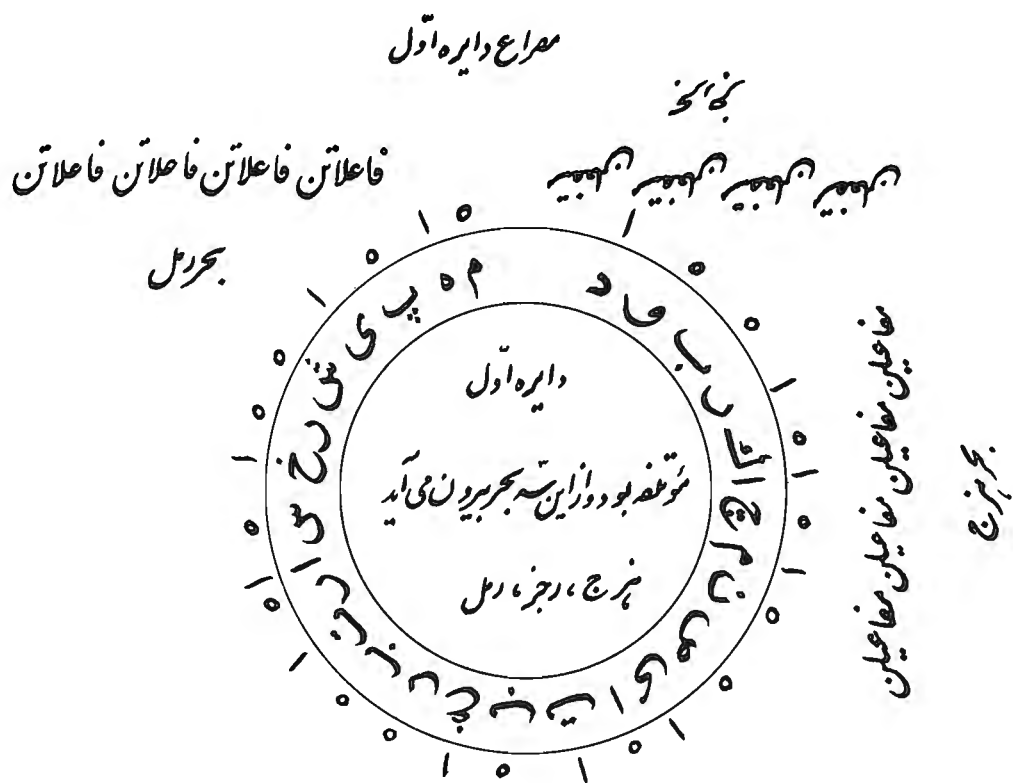 مصراع دایره اوّل
بحر رجز
مستفعلن مستفعلن مستفعلن مستفعلن
فاعلاتن فاعلاتن فاعلاتن فاعلاتن
بحر رمل
مفاعیلن مفاعیلن مفاعیلن مفاعیلن
بحر هزج
دایره اوّل
مؤتلفه بود و از این سه بحر بیرون می‌آید
هزج، رجز، رمل